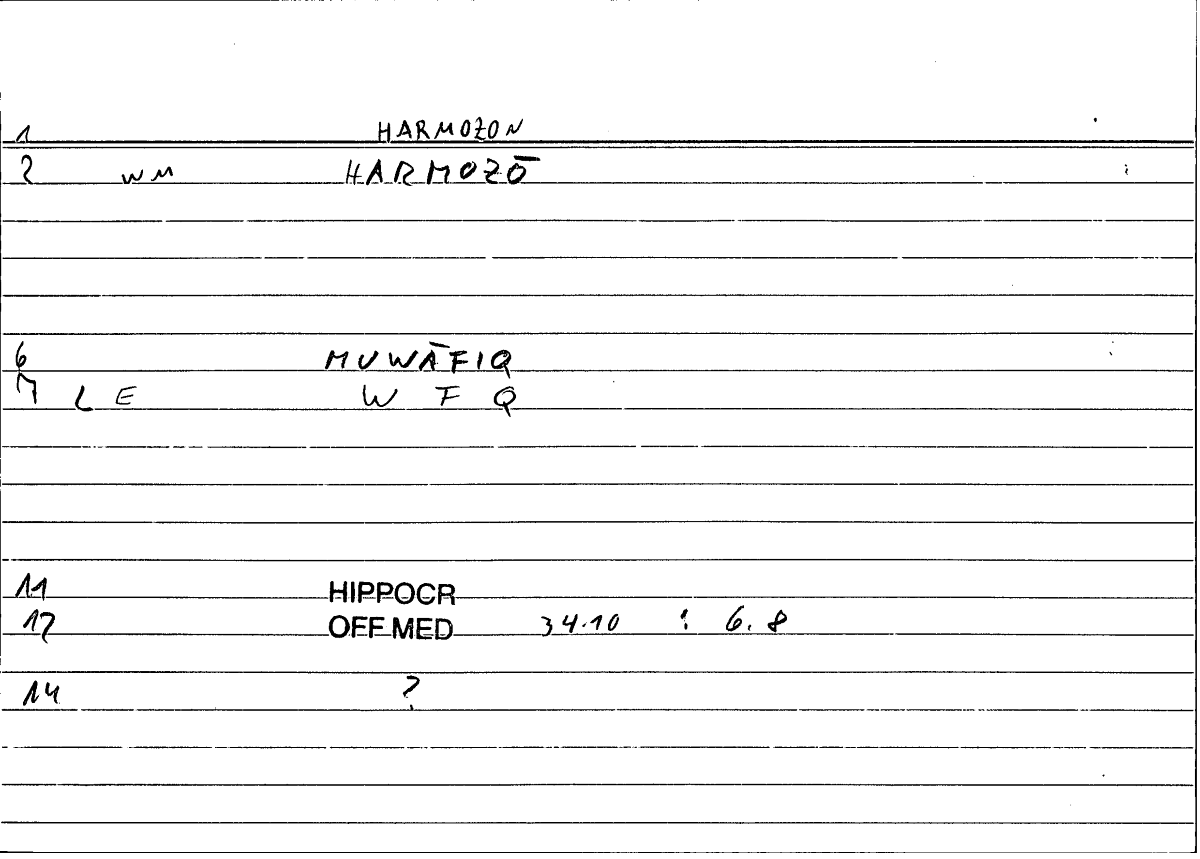 1 HARMOZON
2 WM HARMOZŌ
6 MUWĀFIQ
7 L E W F Q
11 HIPPOCR
12 OFF MED 34.10 : 6.8
14 ?